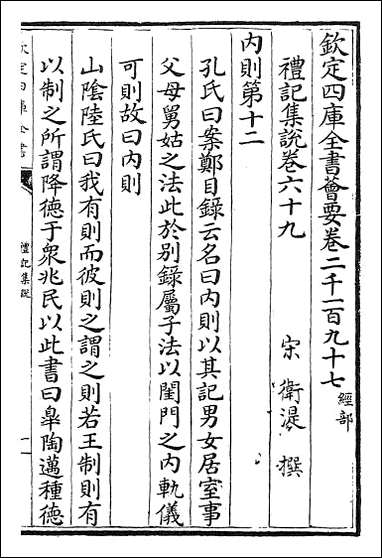 欽定四庫全書薈要卷二千一百九十七 經部
禮記集說卷六十九
宋 衛湜 撰
內則第十二
孔氏曰案鄭目録云名曰內則以其記男女居室事
父母舅姑之法此於别録屬子法以閨門之內軌儀
可則故曰內則
山陰陸氏曰我有則而彼則之謂之則若王制則有
以制之所謂降德于衆兆民以此書曰皐陶邁種德
欽定四庫全書
禮記集說
一